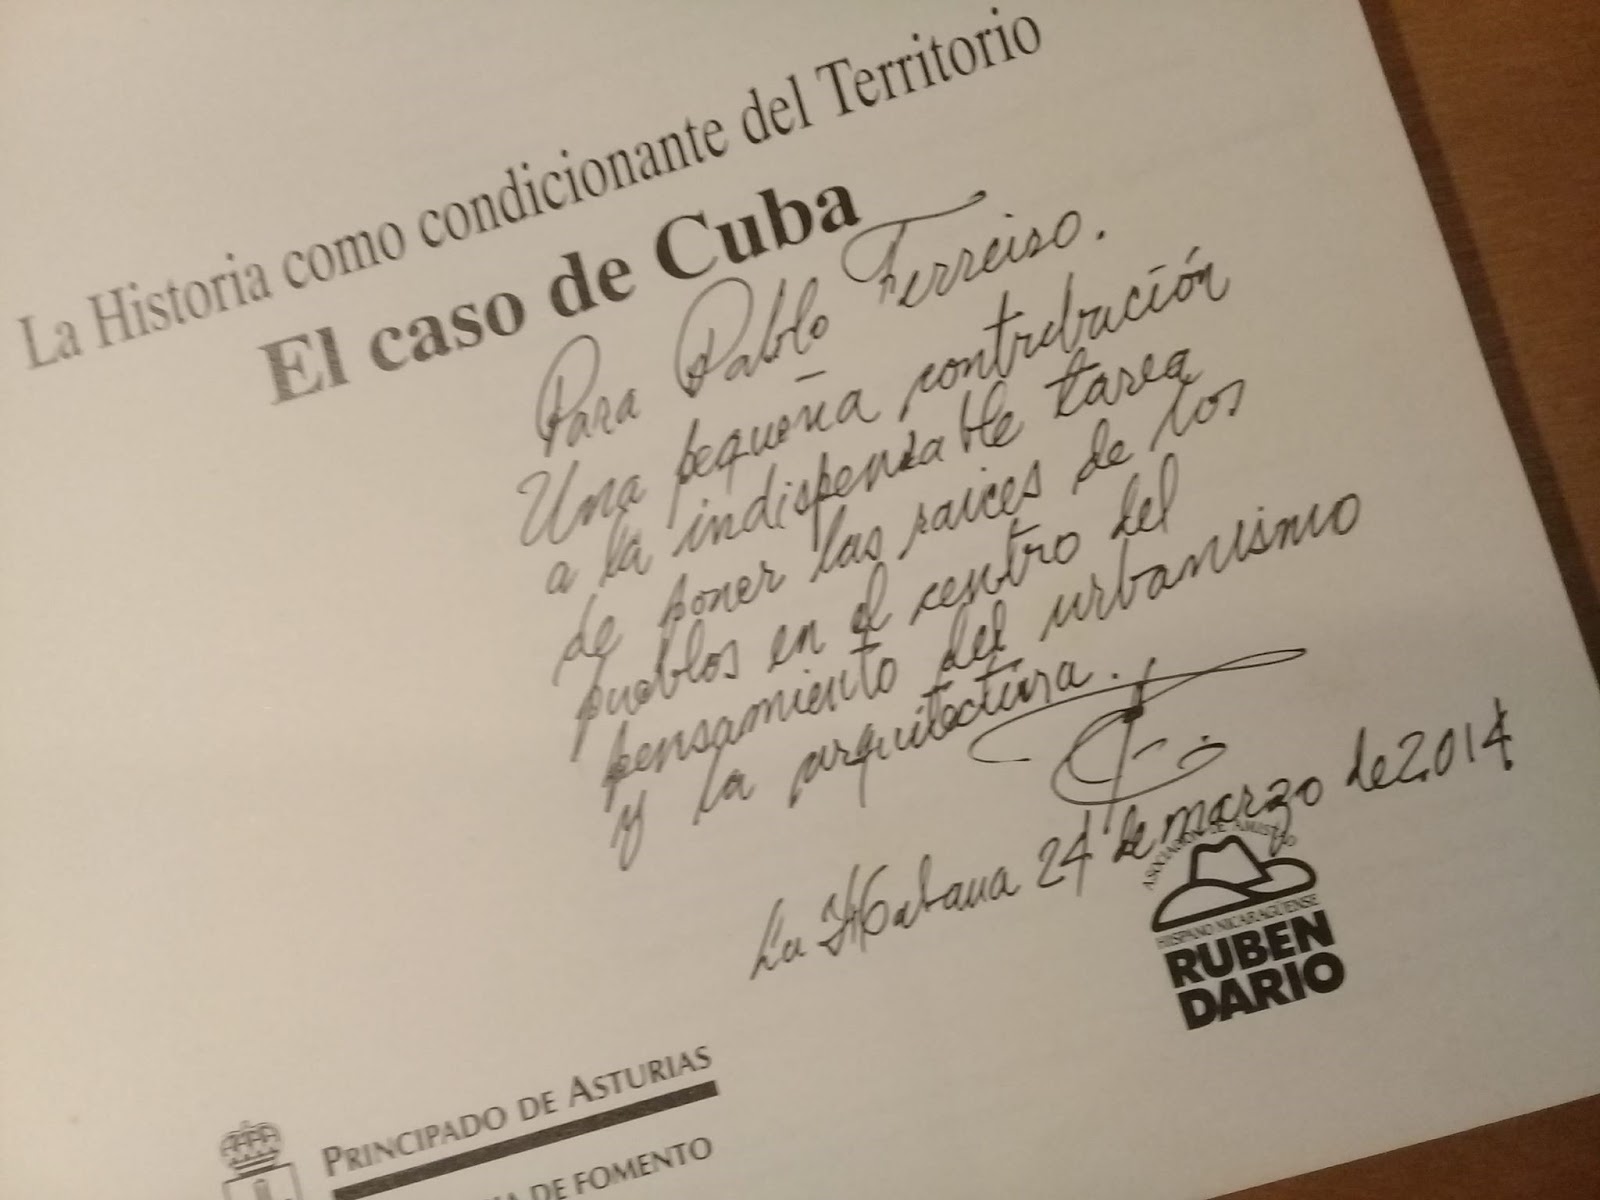 La Historia como condicionante del Territorio
El caso de Cuba
Para Pablo Ferreiro.
Una pequeña contribución
a la indispensable tarea
de poner las raices de los
pueblos en el centro del
pensamiento del urbanismo
y la arquitectura.
La Habana 24 de marzo de 2014
ASOCIACION DE AMISTAD
HISPANO NICARAGÜENSE
RUBEN
DARIO
PRINCIPADO DE ASTURIAS
DE FOMENTO